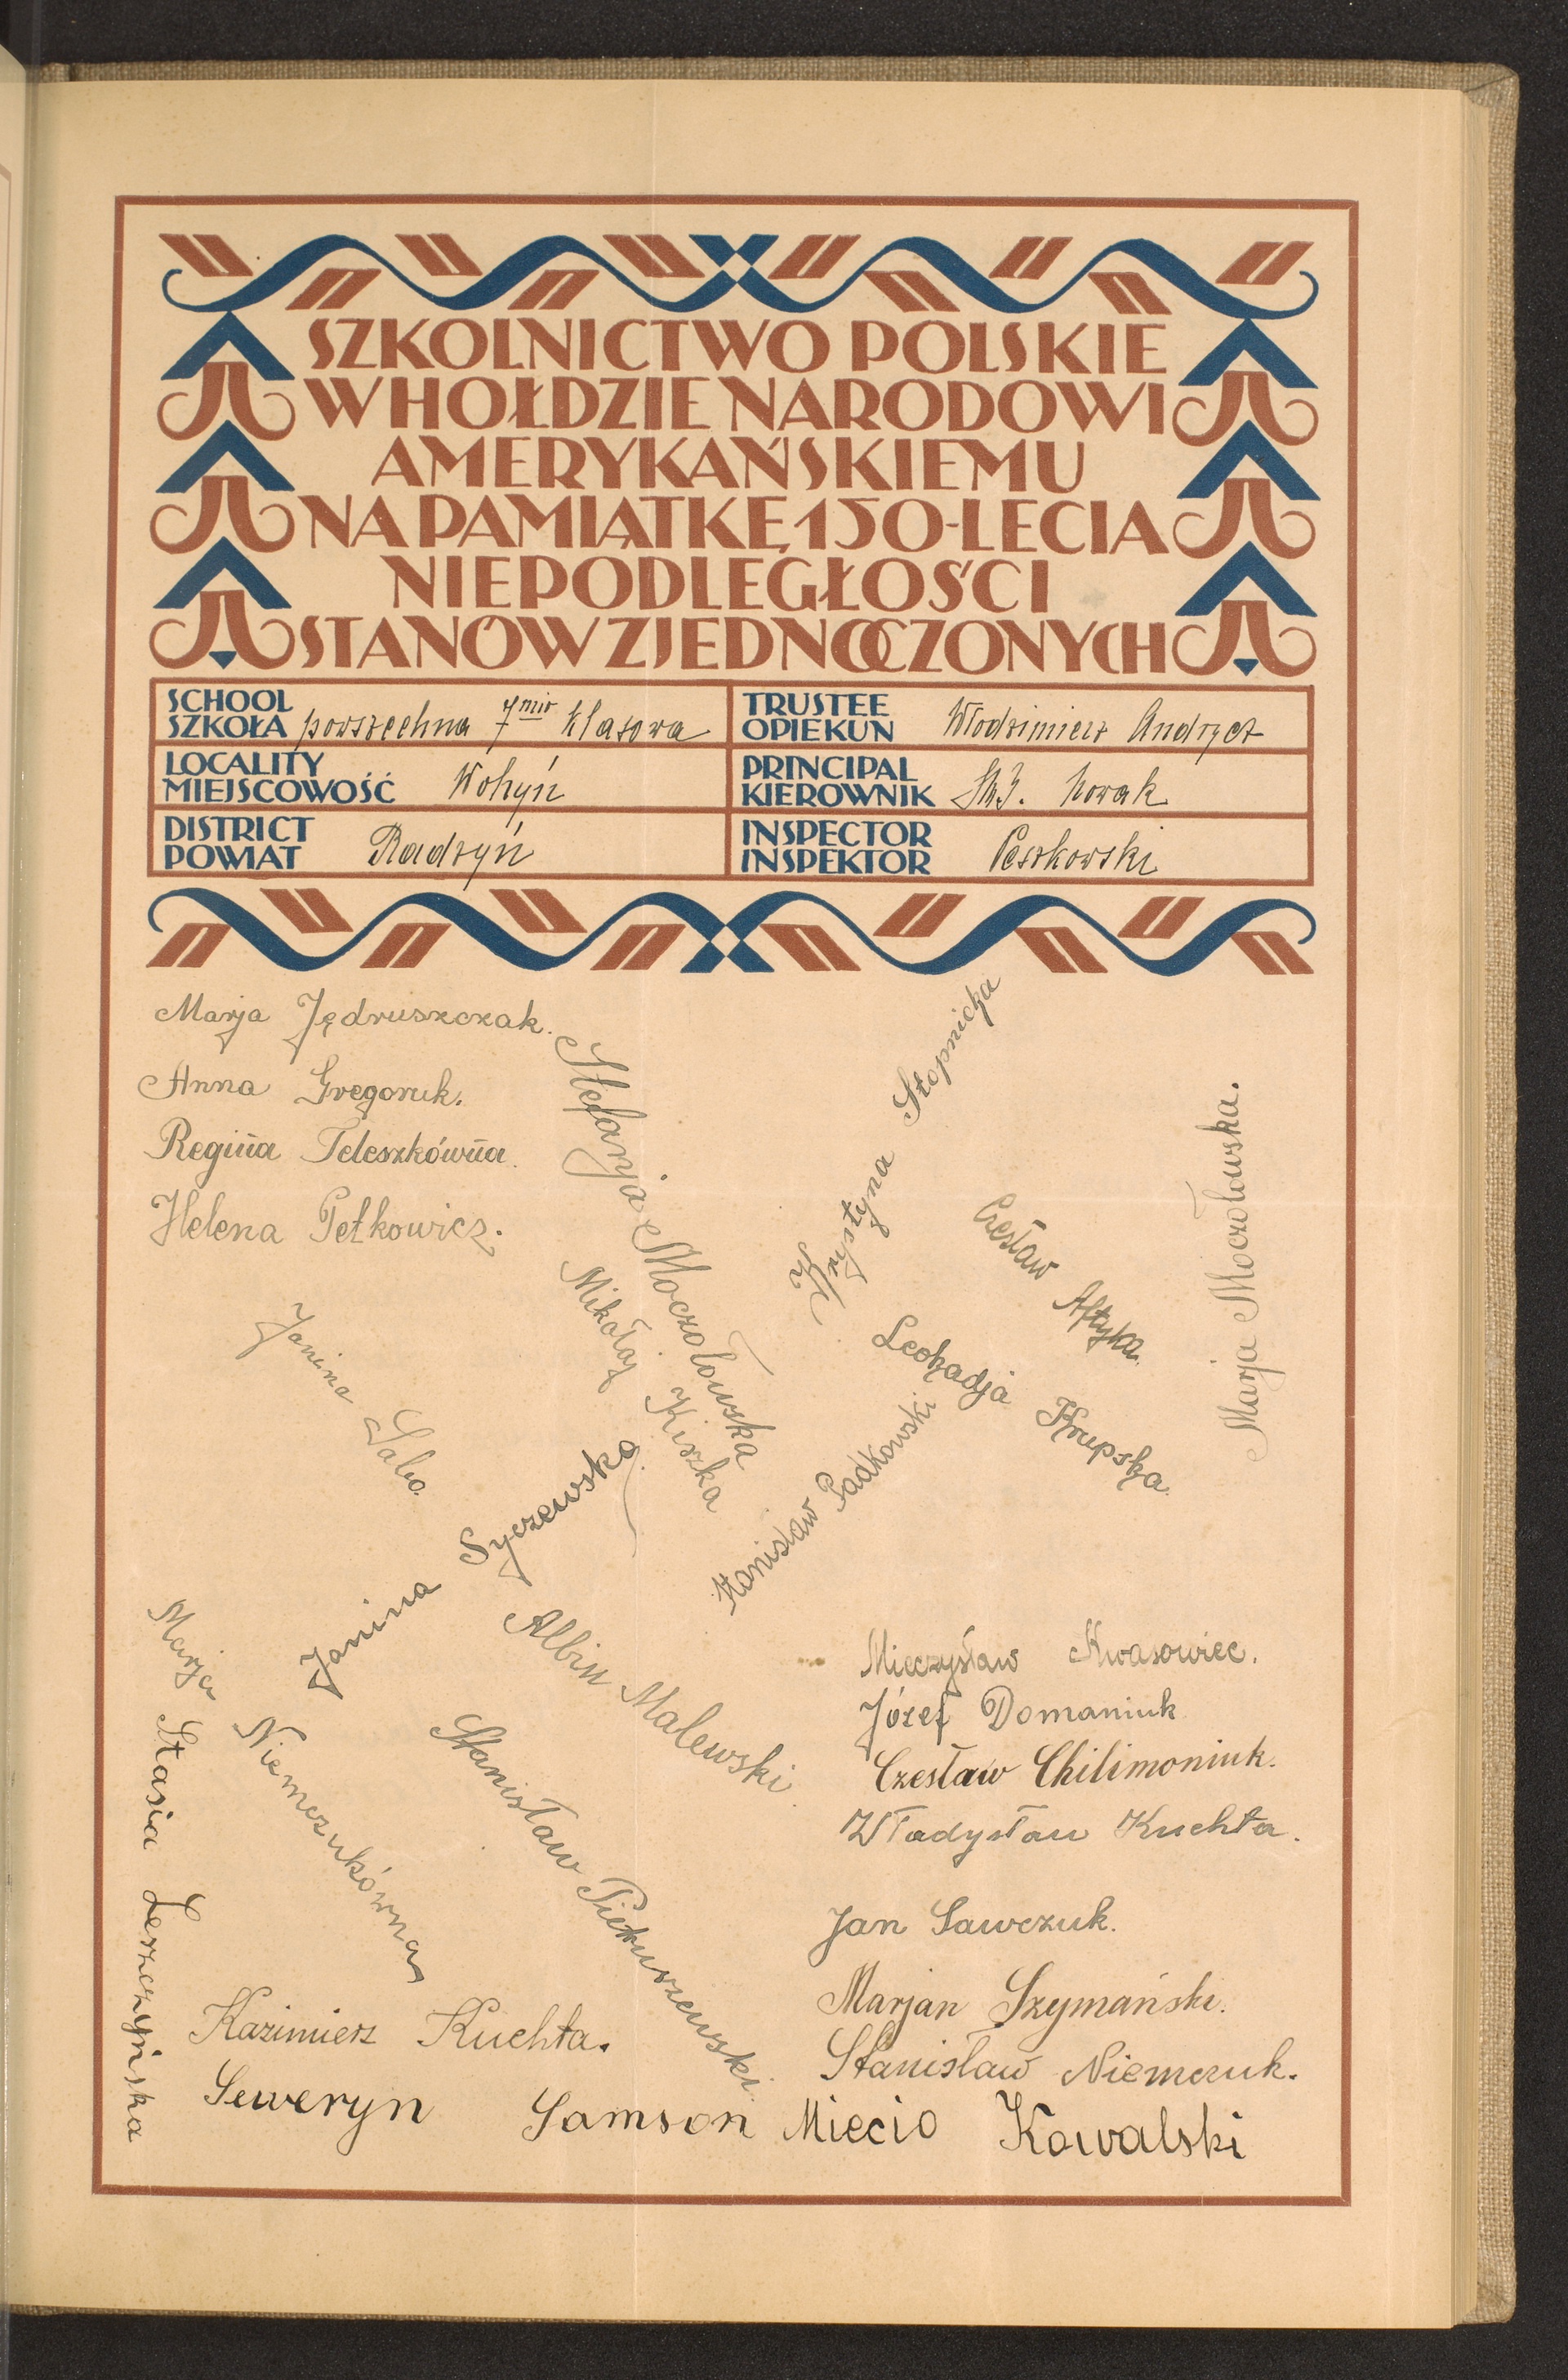 SZKOLNICTWO POLSKIE
W HOŁDZIE NARODOWI
AMERYKAŃSKIEMU
NA PAMIĄTKĘ 150-LECIA
NIEPODLEGŁOŚCI
STANÓW ZJEDNOCZONYCH
SCHOOL
SZKOŁA powszechna 7mio klasowa
LOCALITY
MIEJSCOWOŚĆ Wohyń
DISTRICT
POWIAT Radzyń
TRUSTEE
OPIEKUN Włodzimierz Andrycz
PRINCIPAL
KIEROWNIK Nowak
INSPECTOR
INSPEKTOR Peszkowski
Marja Jędruszczak.
Anna Gregoruk.
Regina Teleszkówna.
Helena Petkowicz.
Stefanja Moczołowska
Krystyna Stopnicka
Marja Moczołowska.
Czesław Aftyka.
Mikołaj Kiszka
Leokadja Krupska.
Janina Sabo.
Stanisław Padkowski
Janina Syczewska.
Albin Malewski.
Marja Niemczukówna
Stanisław Pietruszewski.
Stasia Leszczyńska
Mieczysław Kwasowiec.
Józef Domaniuk
Czesław Chilimoniuk.
Władysław Kuchta.
Jan Sawczuk.
Marjan Szymański.
Stanisław Niemczuk.
Kazimierz Kuchta.
Seweryn Samson
Miecio Kowalski